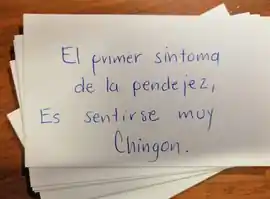 El primer sintoma
de la pendejez,
Es sentirse muy
Chingon.